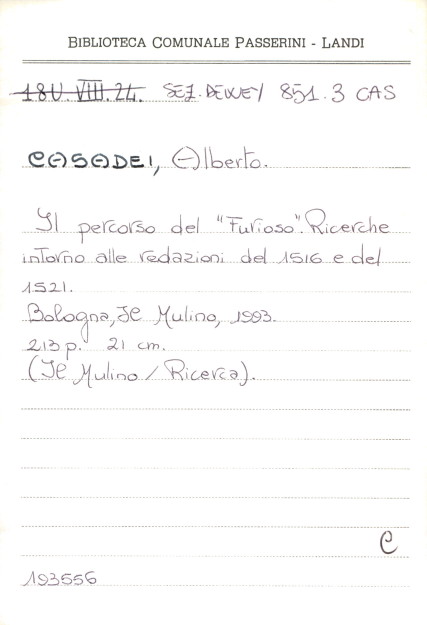 BIBLIOTECA COMUNALE PASSERINI - LANDI
18U.VIII.24. SEZ.DEWEY 851.3 CAS
CASADEI, Alberto.
Il percorso del "Furioso". Ricerche
intorno alle redazioni del 1516 e del
1521.
Bologna, Il Mulino, 1993.
213 p. 21 cm.
(Il Mulino / Ricerca).
C
193556